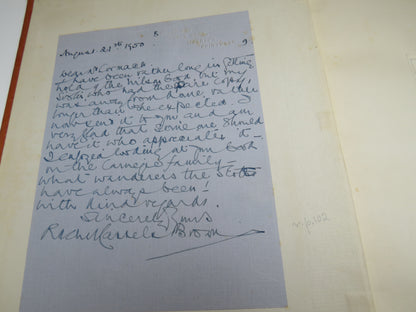 August 21st 1950
Dear Mr Cormack
I have been rather long in getting
hold of the Nelson book, but my
sister who had the spare copy,
was away from home rather
longer than we expected. I
now send it to you and am
very glad that some one should
have it who appreciates it –
I enjoyed looking at your book
on the family –
what wanderers the Scots
have always been!
With kind regards.
Sincerely yours
Brown
p. 102